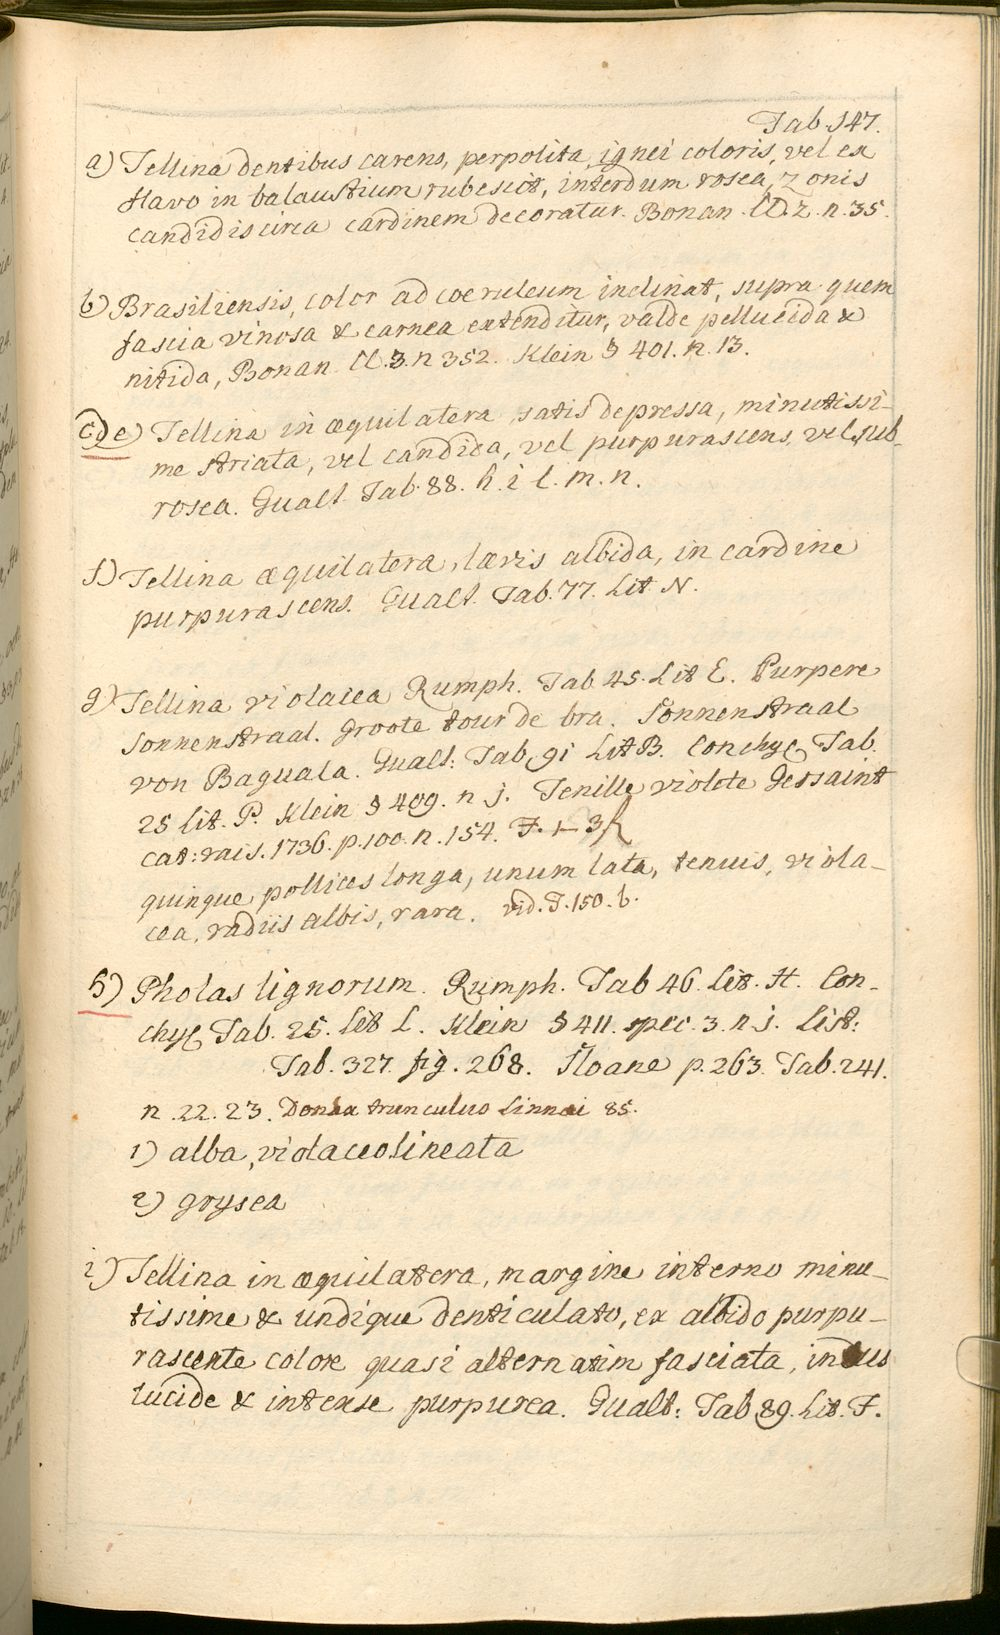 Tab 147.
a) Tellina dentibus carens, perpolita, ignei coloris, vel ex
flavo in balaustium rubescit, interdum rosea, zonis
candidis circa cardinem decoratur. Bonan. Cl. 2. n. 35.
b) Brasiliensis, color ad coeruleum inclinat, supra quem
fascia vinosa & carnea extenditur, valde pellucida &
nitida, Bonan. Cl. 3. n 352. Klein § 401. n. 13.
c d e) Tellina in æquilatera satis depressa, minutissi-
me striata, vel candida, vel purpurascens, vel sub-
rosea. Gualt. Tab. 88. h. i l. m. n.
f) Tellina æquilatera, lævis albida, in cardine
purpurascens. Gualt. Tab. 77. Lit N.
g) Tellina violacea Rumph. Tab 45. Lit E. Purpere
Sonnenstraal. groote tour de bra. Sonnenstraal
von Baguala. Gualt: Tab. 91 Lit B. Conchyl Tab.
25 lit. P. Klein § 409. n j. Tenille violete Gersaint
cat: rais. 1736. p. 100. n. 154. F. 1 - 3 fl
quinque pollices longa, unum lata, tenuis, viola-
cea, radiis albis, rara. vid. T. 150. b.
h) Pholas lignorum. Rumph. Tab 46. Lit. H. Con-
chyl Tab. 25. Lit L. Klein § 411. spec. 3. n j. List:
Tab. 327. fig. 268. Sloane p. 263. Tab. 241.
n. 22. 23. Donax trunculus Linnæi 85.
1) alba, violaceo lineata
2) grysea
i) Tellina in æquilatera, margine interno minu-
tissime & undique denticulato, ex albido purpu-
rascente colore quasi alternatim fasciata, intus
lucide & intense purpurea. Gualt: Tab 89. Lit. F.